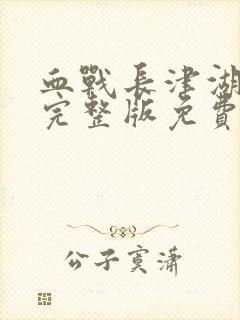 血戰長津湖
完整版免費
公子寞瀟